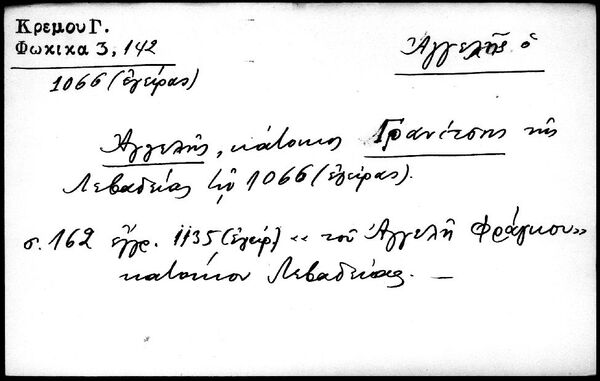 Κρεμου Γ.
Φωκικα 3, 142
1066 (ἐγείρας)
Ἀγγελῆς ὁ
Ἀγγελῆς, κάτοικος Γρανίτσης τῆς
Λεβαδείας τῷ 1066 (ἐγείρας).
σ. 162 ἔγγρ. 1135 (ἐγείρ) «τοῦ Ἀγγελῆ Φράγκου»
κατοίκου Λεβαδείας. —